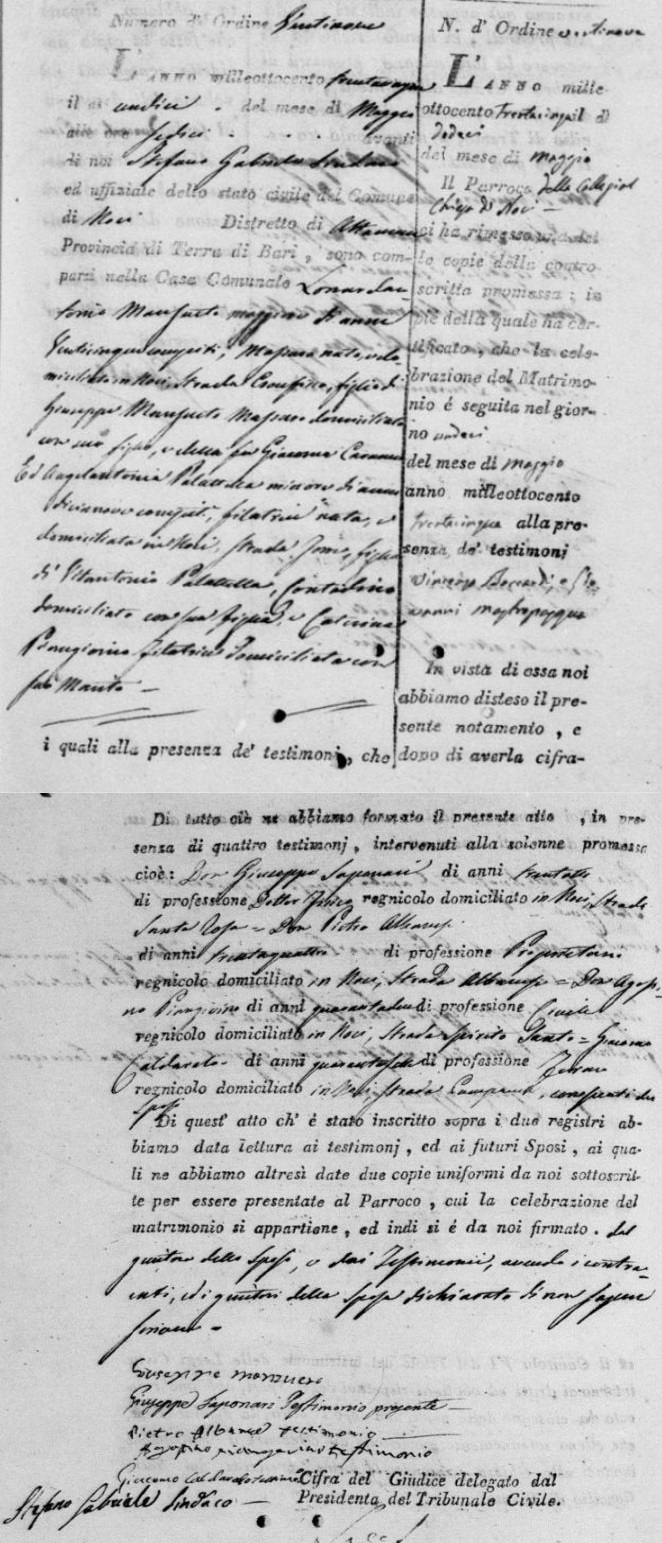 Numero d' Ordine Ventinove
L' ANNO milleottocento trentacinque
il dì undici del mese di Maggio
alle ore sedici avanti
di noi Stefano Gabriele Sindaco
ed uffiziale dello stato civile del Comune
di Noci Distretto di Altamura
Provincia di Terra di Bari, sono com-
parsi nella Casa Comunale Leonardan-
tonio Mansueto maggiore di anni
venticinque compiti, Massaro nato, e do-
miciliato in Noci, Strada figlio di
Giuseppe Mansueto Massaro domiciliato
con suo figlio, e della fu Giacoma
Ed Angelantonia Palattella minore di anni
diecianove compiti, filatrice nata, e
domiciliata in Noci, Strada figlia
di Vitantonio Palattella, Contadino
domiciliato con sua figlia, e Caterina
Piangivino filatrice domiciliata con
suo Marito
i quali alla presenza de' testimonj, che
N. d' Ordine ventinove
L' ANNO mille-
ottocento trentacinque il dì
dodeci
del mese di Maggio
Il Parroco della Collegial
Chiesa di Noci
ci ha rimesso una del-
le copie della contro-
scritta promessa; in
piè della quale ha cer-
tificato, che la cele-
brazione del Matrimo-
nio é seguita nel gior-
no undeci
del mese di Maggio
anno milleottocento
trentacinque alla pre-
senza de' testimonj
Vincenzo e
In vista di essa noi
abbiamo disteso il pre-
sente notamento, e
dopo di averla cifra-
Di tutto ciò ne abbiamo formato il presente atto, in pre-
senza di quattro testimonj, intervenuti alla solenne promessa
cioè: Don Giuseppe Saponari di anni
di professione Dottor regnicolo domiciliato in Noci, Strada
Santa Rosa = Don Pietro Albanese
di anni trentaquattro di professione Proprietario
regnicolo domiciliato in Noci, Strada Albanese = Don Agopi-
no Piangivino di anni quarantadue di professione Civile
regnicolo domiciliato in Noci, Strada Spirito Santo = Giacomo
Caldarola di anni di professione
regnicolo domiciliato in Noci, Strada
Sposi
Di quest' atto ch' é stato inscritto sopra i due registri ab-
biamo data lettura ai testimonj, ed ai futuri Sposi, ai qua-
li ne abbiamo altresì date due copie uniformi da noi sottoscrit-
te per essere presentate al Parroco, cui la celebrazione del
matrimonio si appartiene, ed indi si é da noi firmato. dal
genitore dello sposo, e dai Testimonii, avendo i contra-
enti, ed i genitori della sposa dichiarato di non sapere
scrivere
Giuseppe mansueto
Giuseppe Saponari Testimonio presente
Pietro Albanese testimonio
Agopino piangivino testimonio
Giacomo Caldarola testimonio
Stefano Gabriele Sindaco
Cifra del Giudice delegato dal
Presidente del Tribunale Civile.